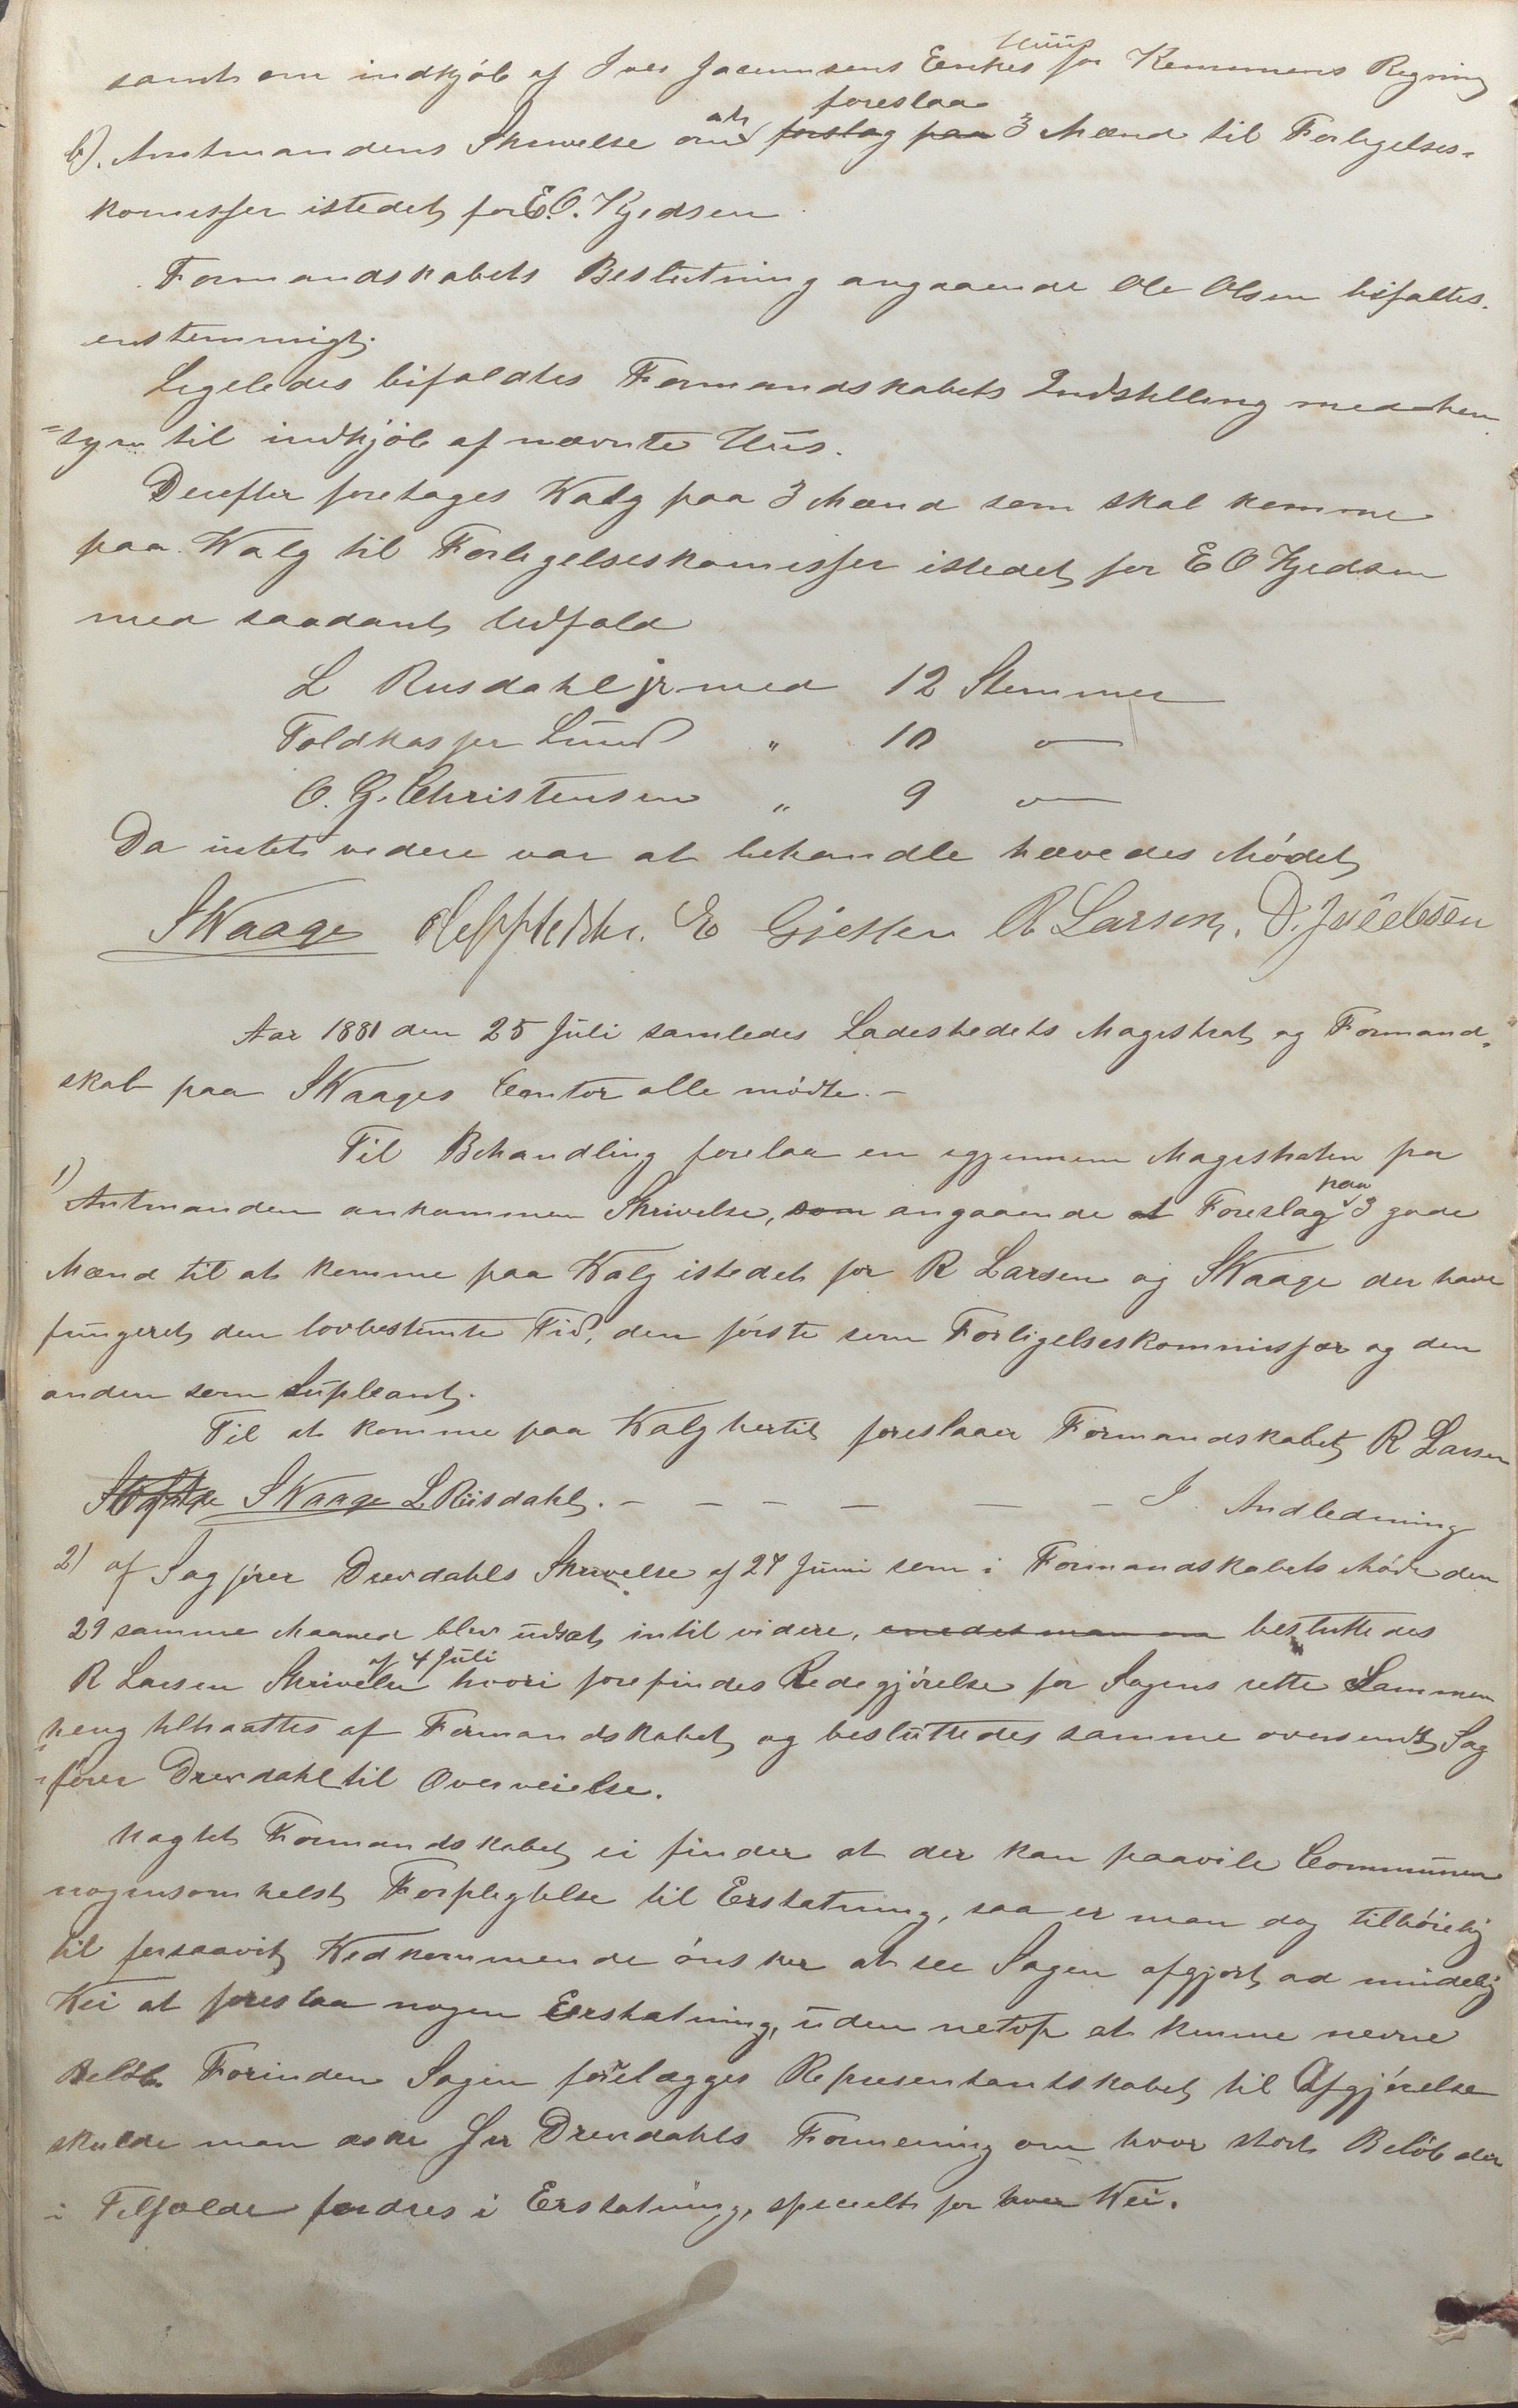 samt om indkjöb af Iver Jacunsens Enkes Huus for Kommunens Regning
b). Amtmandens Skrivelse om at foreslaa forslag paa 3 Mænd til Forligelses-
komisser istedet for E.O. Kjedsen
Formandskabets Beslutning angaaende Ole Olsen bifaltes
enstemmigt.
Ligeledes bifaldtes Formandskabets Indstilling medhen
=syn til indkjöb af nævnte Hus.
Derefter foretages Valg paa 3 Mænd som skal komme
paa Valg til Forligelseskomisser istedet for E O Kjedsen
med saadant Udfald
L Rusdahl jr med 12 Stemmer
Toldkasser Lund " 10 —
O. G. Christensen " 9 —
Da intet videre var at behandle hævedes Mödet
S Waage E Gjessen R Larsen. D. Jacobsen
Aar 1881 den 25 Juli samledes Ladestedets Magistrat og Formand-
skab paa S Waages Contor alle mödte. –
Til Behandling forelaa en igjennem Magistraten fra
1) Amtmanden ankommen Skrivelse, som angaaende at Foreslag paa 3 gode
Mænd til at komme paa Valg istedet for R Larsen og S Waage der have
fungeret den lovbestemte Tid, den förste som Forligelseskommissær og den
anden som Supleant.
Til at komme paa Valg hertil foreslaaer Formandskabet R Larsen
S Waage L Riisdahl. – – – – – – – I Andledning
2) af Sagförer Drevdahls Skrivelse af 24 Juni som i Formandskabets Möde den
29 samme Maaned blev udsat intil videre, besluttedes
R Larsen Skrivelse af 4 Juli hvori forefindes Redegjörelse for Sagens rette Sammen
=heng tiltraattes af Formandskabet og besluttedes samme oversendt Sag
=förer Drevdahl til Overveielse.
Uagtet Formandskabet ei finder at der kan paavile Communen
nogensomhelst Forpligtelse til Erstatning, saa er man dog tilböielig
til forsaavit Vedkommende önsker at see Sagen afgjort ad mindelig
Vei at foreslaa nogen Erstatning, uden netop at kunne nevne
Belöb. Forinden Sagen forelægges Representantskabet til Afgjörelse
skulde man æske Hr Drevdahls Formening om hvor stort Belöb der
i Tilfælde fordres i Erstatning, specielt for hver Vei.